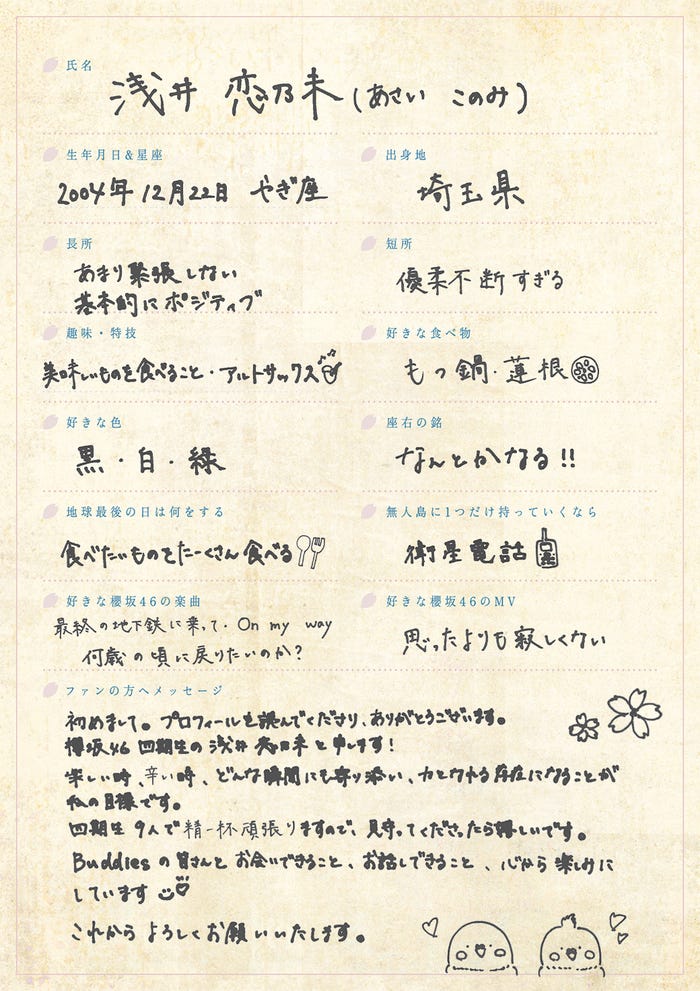 氏名
浅井 恋乃未(あさい このみ)
生年月日&星座
2004年12月22日 やぎ座
出身地
埼玉県
長所
あまり緊張しない
基本的にポジティブ
短所
優柔不断すぎる
趣味・特技
美味しいものを食べること・アルトサックス
好きな食べ物
もつ鍋・蓮根
好きな色
黒・白・緑
座右の銘
なんとかなる!!
地球最後の日は何をする
食べたいものをたーくさん食べる
無人島に1つだけ持っていくなら
衛星電話
好きな櫻坂46の楽曲
最終の地下鉄に乗って・On my way
何歳の頃に戻りたいのか?
好きな櫻坂46のMV
思ったよりも寂しくない
ファンの方へメッセージ
初めまして。プロフィールを読んでくださり、ありがとうございます。
櫻坂46 四期生の 浅井 恋乃未 と申します!
楽しい時、辛い時、どんな瞬間にも寄り添い、力となれる存在になることが
私の目標です。
四期生 9人で精一杯頑張りますので、見守ってくださったら嬉しいです。
Buddiesの皆さんとお会いできること、お話しできること、心から楽しみに
しています
これからよろしくお願いいたします。